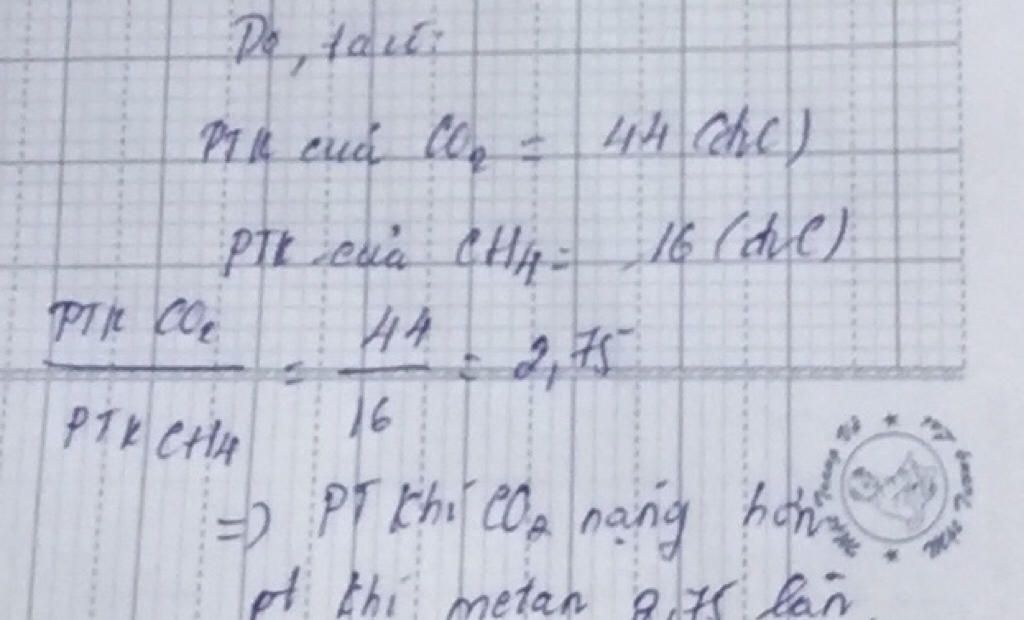 Do, ta có:
PTK của CO₂ = 44 (đvC)
PTK của CH₄ = 16 (đvC)
PTK CO₂ / PTK CH₄ = 44 / 16 = 2,75
=> PT khí CO₂ nặng hơn
pt khí metan 2,75 lần